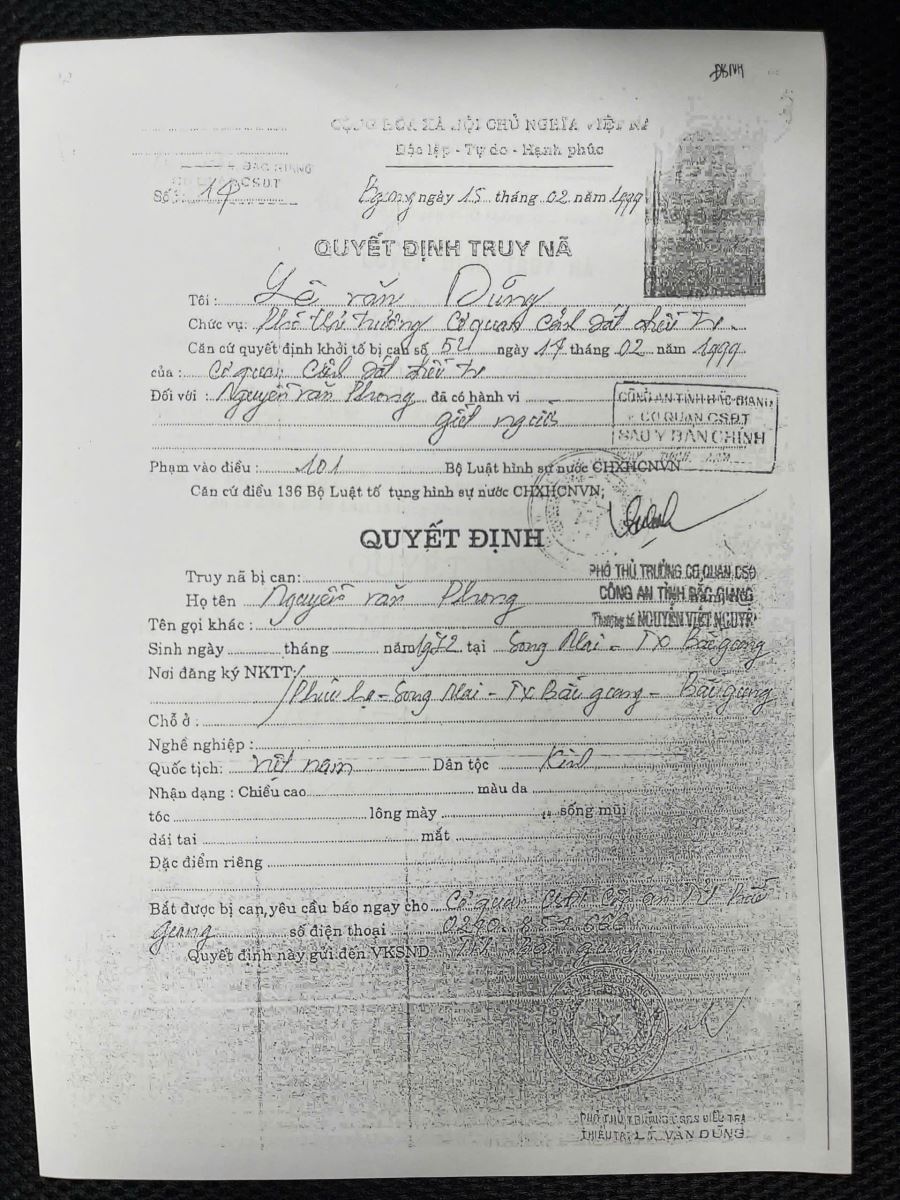 CỘNG HÒA XÃ HỘI CHỦ NGHĨA VIỆT NA
Độc lập - Tự do - Hạnh phúc
BẮC GIANG
CSĐT
Số: 19
ngày 15 tháng 02 năm 1999
QUYẾT ĐỊNH TRUY NÃ
Tôi: Lê văn Dũng
Chức vụ: Phó thủ trưởng Cơ quan cảnh sát điều tra
Căn cứ quyết định khởi tố bị can số 52 ngày 17 tháng 02 năm 1999
của: Cơ quan Cảnh sát điều tra
Đối với: Nguyễn văn Phong đã có hành vi
giết người
CÔNG AN TỈNH BẮC GIANG
CƠ QUAN CSĐT
SAO Y BẢN CHÍNH
Phạm vào điều: 101 Bộ Luật hình sự nước CHXHCNVN
Căn cứ điều 136 Bộ Luật tố tụng hình sự nước CHXHCNVN;
QUYẾT ĐỊNH
PHÓ THỦ TRƯỞNG CƠ QUAN CSĐ
CÔNG AN TỈNH BẮC GIANG
Thượng tá NGUYỄN VIẾT
Truy nã bị can:
Họ tên Nguyễn văn Phong
Tên gọi khác:
Sinh ngày tháng năm 1972 tại Song Mai - TX Bắc giang
Nơi đăng ký NKTT:
Song Mai - Tx Bắc giang - Bắc giang
Chỗ ở:
Nghề nghiệp:
Quốc tịch: việt nam Dân tộc Kinh
Nhận dạng: Chiều cao màu da
tóc lông mày sống mũi
dái tai mắt
Đặc điểm riêng
Bắt được bị can, yêu cầu báo ngay cho Cơ quan CSĐT Công an Tỉnh Bắc
Giang số điện thoại
Quyết định này gửi đến VKSND Tỉnh Bắc giang
PHÓ THỦ TRƯỞNG ĐIỀU TRA
THIẾU TÁ: LÊ VĂN DŨNG